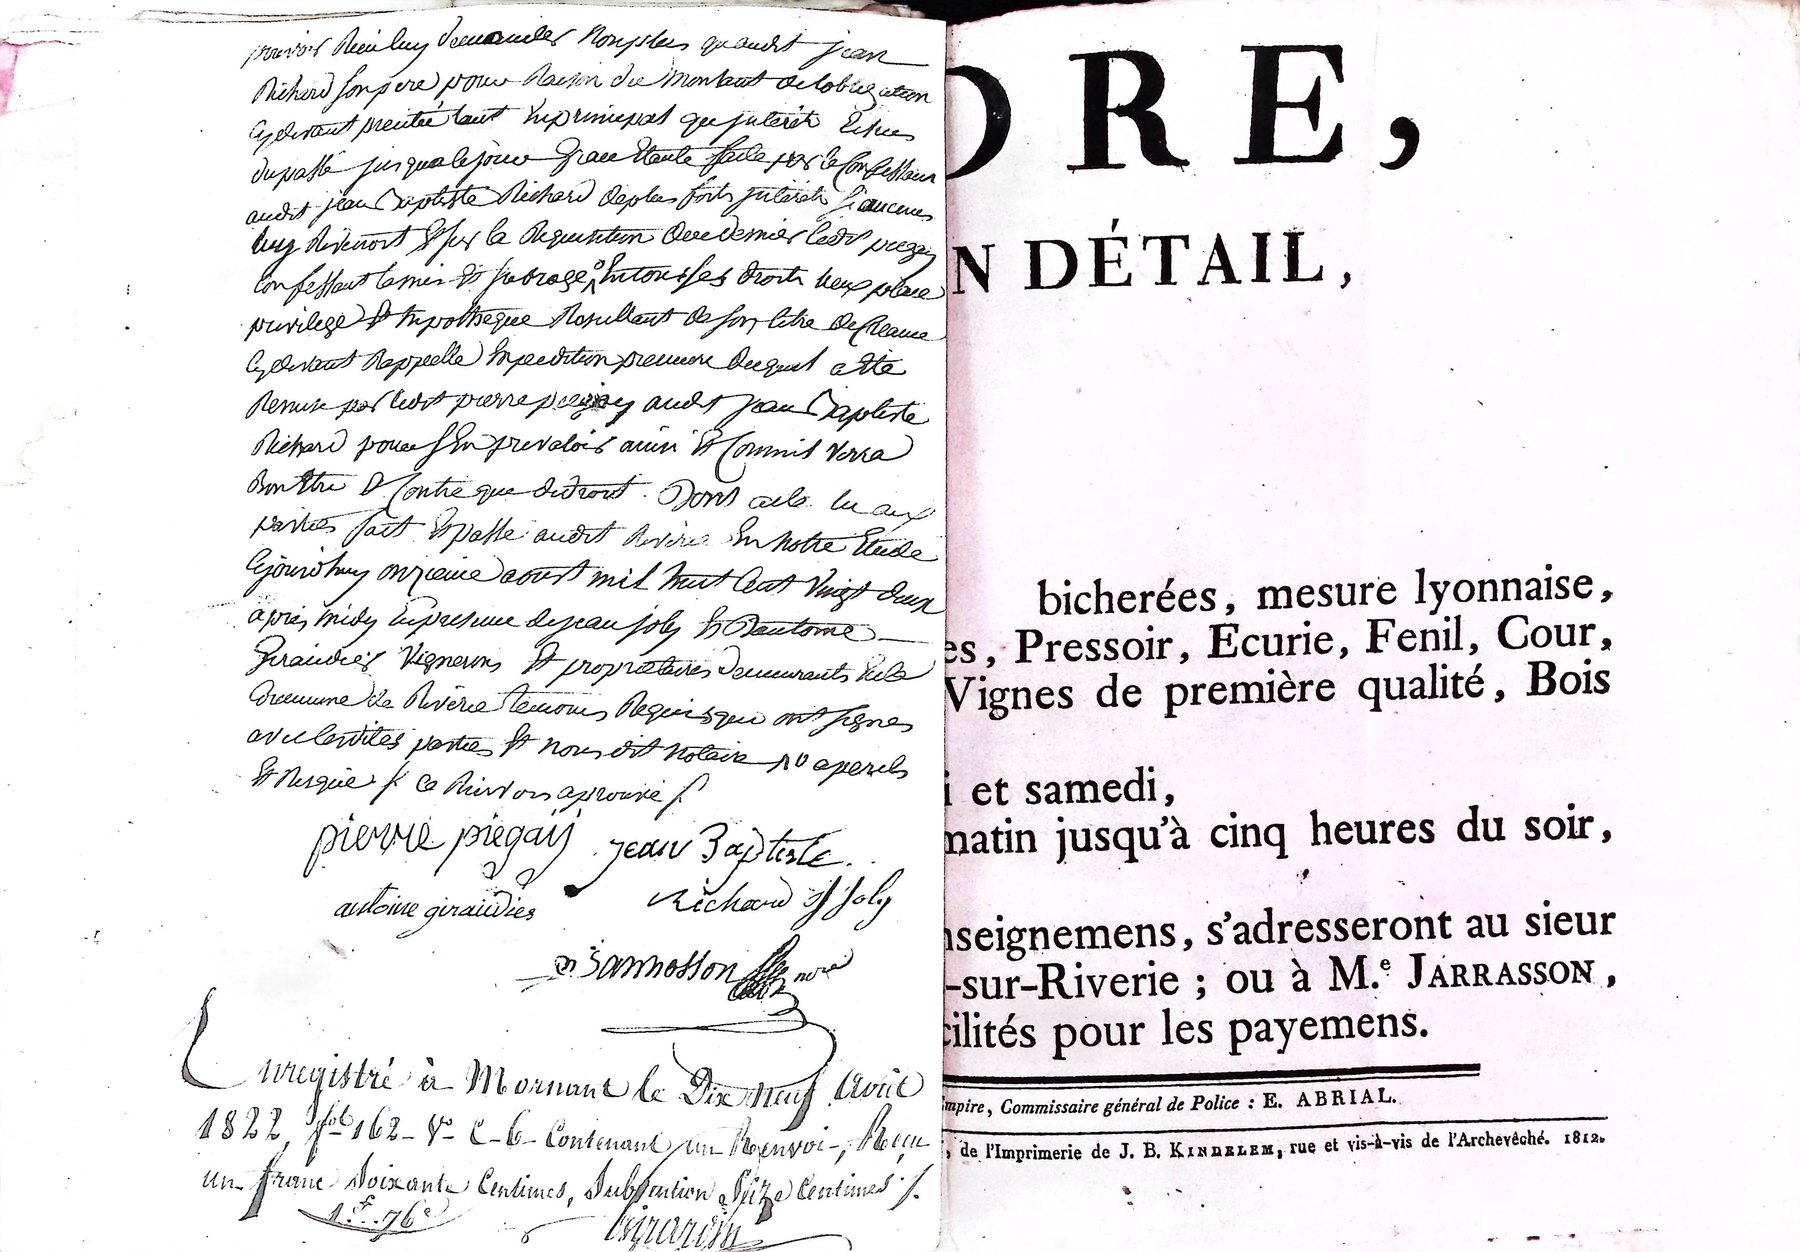 pouvoir Rien luy demander Non plus quaudit jean
Richard son pere pour Raison du montant de lobligation
cydevant precitée tant En principal que jnterêts Echus
du passé jusqua ce jour Grace Etante faite par le Confessant
audit jean Baptiste Richard de plus forts jnterêts si aucuns
luy Revenoit Et sur la Requisition de ce dernier ledit piegay
Confessant la mis Et subrogé En tous ses droits lieux place
privilege Et hypotheque Resultant de son titre de Creance
cydevant Rappellé Expedition premiere duquel a Eté
Remise par ledit pierre piegay audit jean Baptiste
Richard pour sen prevaloir ainsi Et Comme il Verra
Bon Etre Et Contre que de droit. Dont acte lu aux
parties fait Et passé audit Riverie En notre Etude
cejourdhuy onzieme aoust mil huit Cent Vingt deux
apres midy En presence de jean joly Et D'antoine
Giraudier Vignerons Et proprietaires demeurants En la
Commune de Riverie temoins Requis qui ont signés
avec lesdites parties Et nous dit notaire
Et Requis /. ce Renvoi aprouvé /.
pierre piegay jean Baptiste
antoine giraudier Richard JJ Joly
Jarrosson nore
Enregistré à Mornant le Dix Neuf Août
1822, fol 162 Vo C. 6 Contenant un Renvoi, Reçu
un franc Soixante Centimes, Subvention Seize Centimes /.
1.f 76c
Girardin
DRE,
N DÉTAIL,
bicherées, mesure lyonnaise,
es, Pressoir, Ecurie, Fenil, Cour,
Vignes de première qualité, Bois
i et samedi,
matin jusqu'à cinq heures du soir,
nseignemens, s'adresseront au sieur
-sur-Riverie ; ou à M.e JARRASSON,
cilités pour les payemens.
mpire, Commissaire général de Police : E. ABRIAL.
, de l'Imprimerie de J. B. KINDELEM, rue et vis-à-vis de l'Archevêché. 1812.